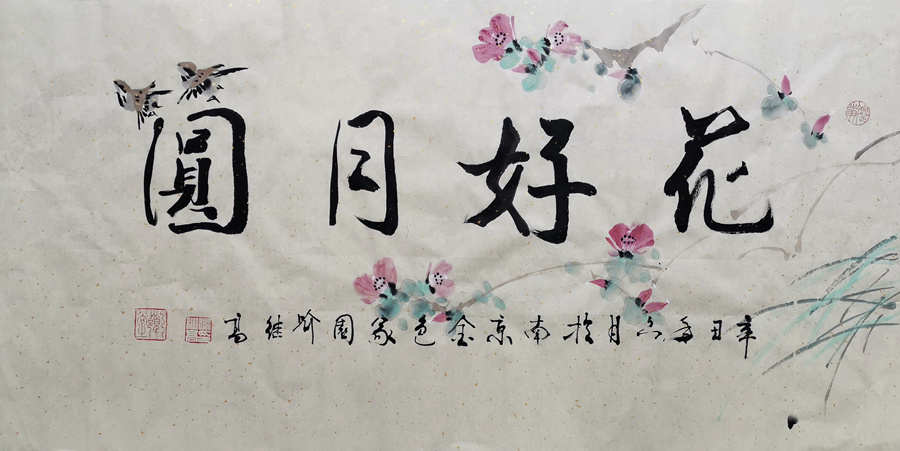 花好月圓
辛丑年六月於南京金色家園高